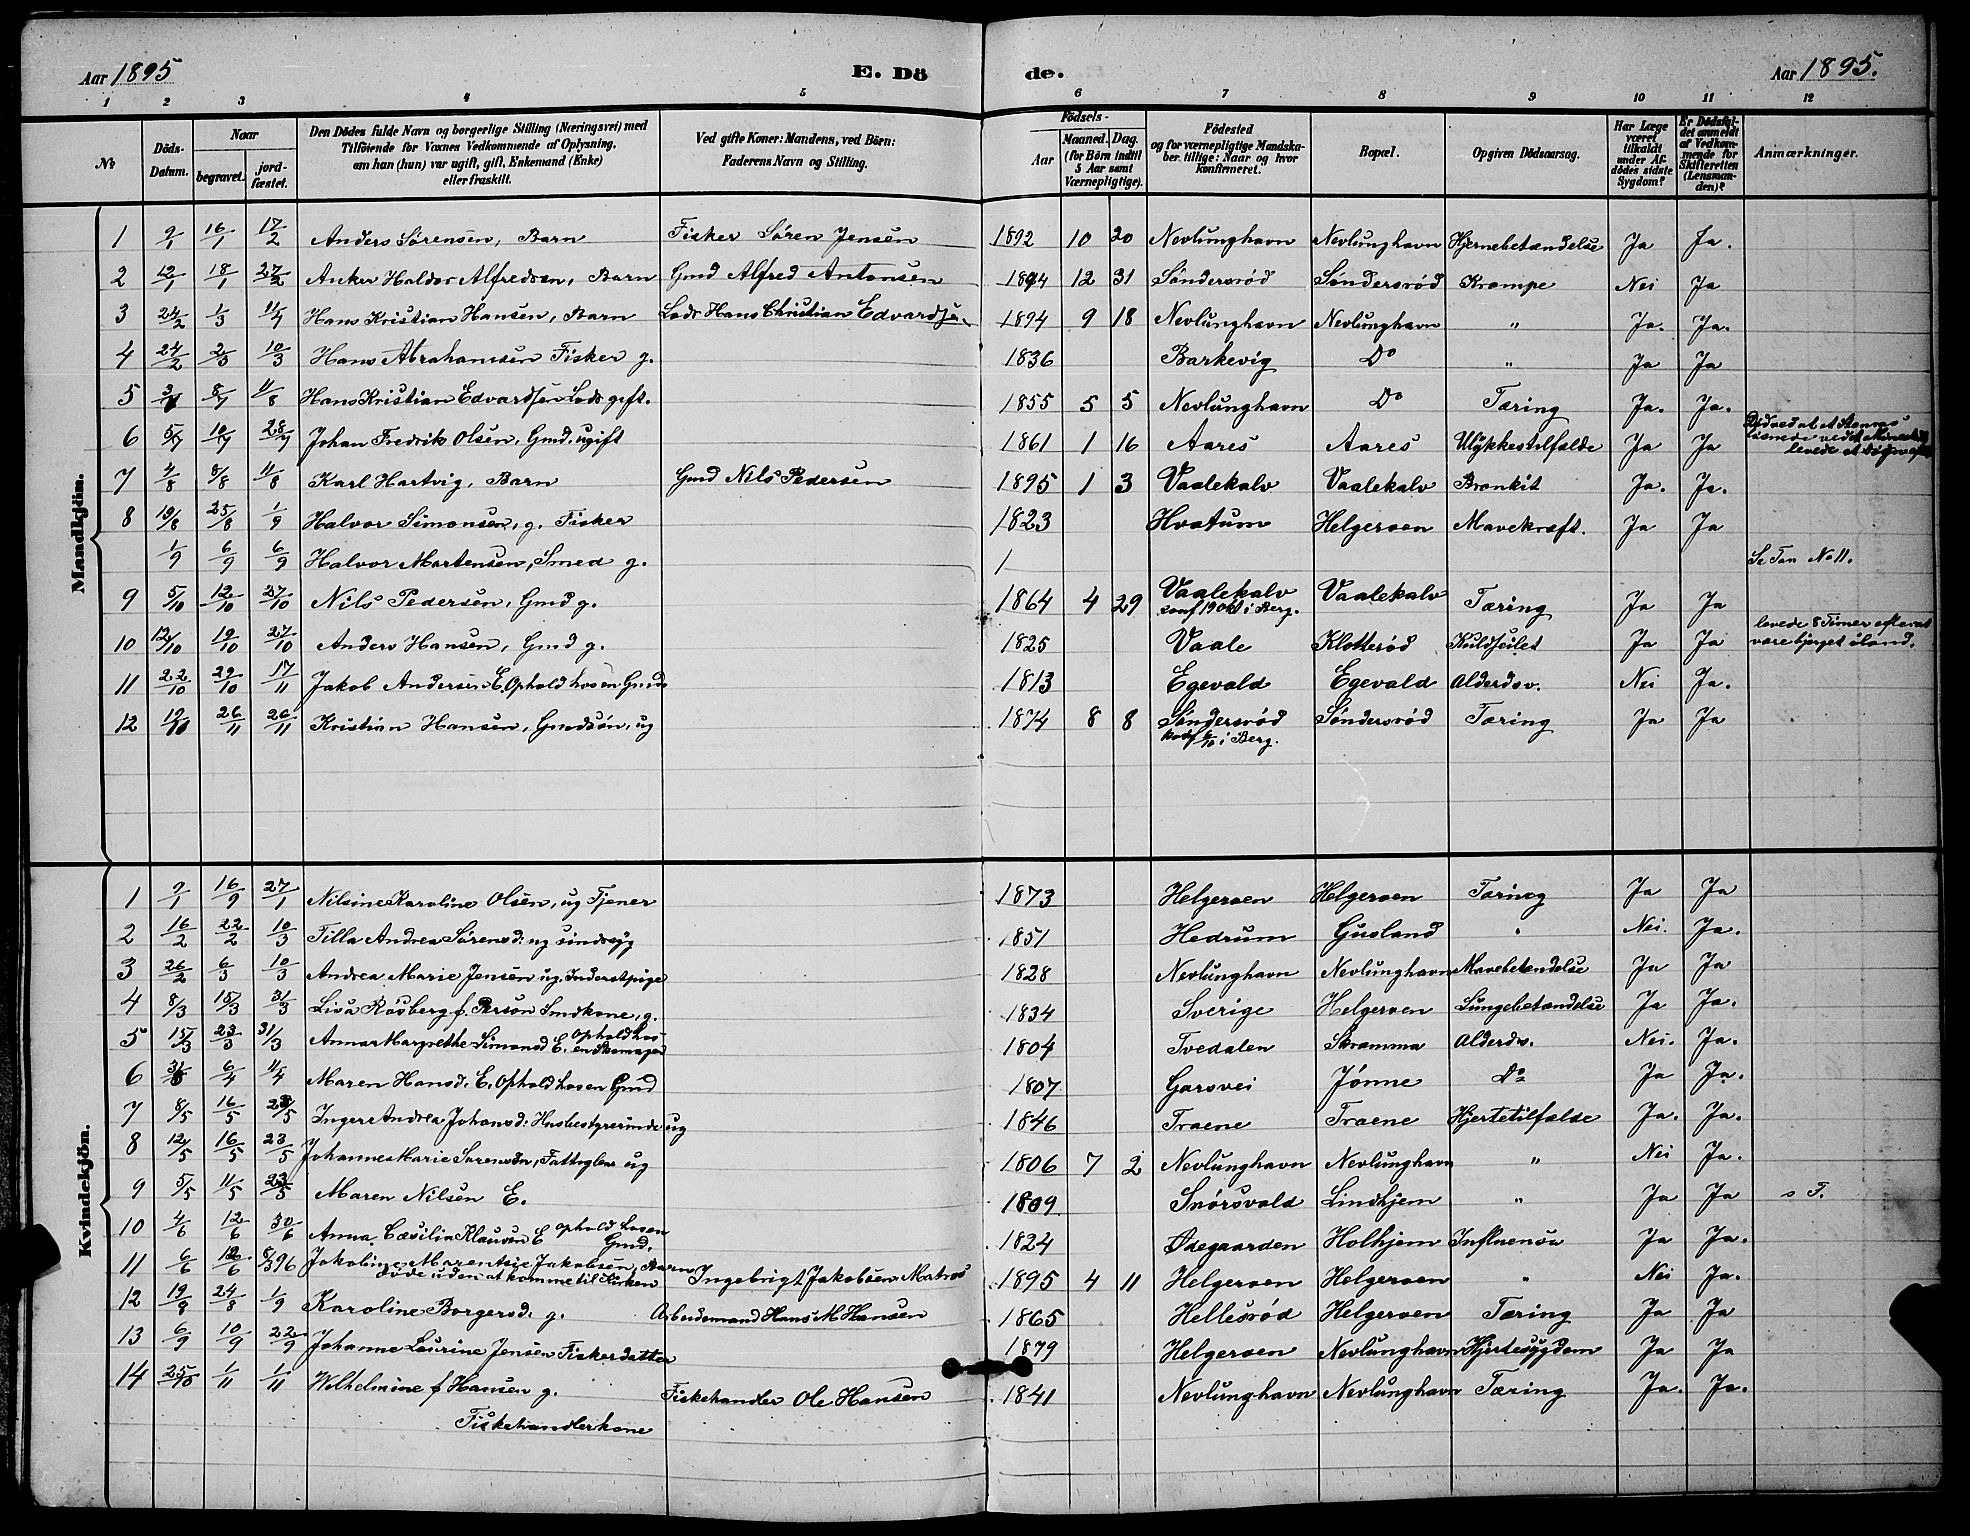 Aar 1895 E. Dö de. Aar 1895.
1 2 3 4 5 6 7 8 9 10 11 12
№ Döds-Datum. Naar begravet. jordfæstet. Den Dödes fulde Navn og borgerlige Stilling (Næringsvei) med Tilföiende for Voxnes Vedkommende af Oplysning, om han (hun) var ugift, gift, Enkemand (Enke) eller fraskilt. Ved gifte Koner: Mandens, ved Börn: Faderens Navn og Stilling. Födsels- Aar Maaned. Dag. (for Börn indtil 5 Aar samt Værnepligtige). Födested og for værnepligtige Mandskaber tillige: Naar og hvor konfirmeret. Bopæl. Opgiven Dödsaarsag. Har Læge været tilkaldt under Afdödes sidste Sygdom? Er Dödsfaldet anmeldt af Vedkommende for Skifteretten (Lensmanden)? Anmærkninger.
Mandkjön.
1 9/1 16/1 17/2 Anders Sørensen, Barn Fisker Søren Jensen 1892 10 20 Nevlunghavn Nevlunghavn Hjernebetændelse Ja Ja.
2 12/1 18/1 27/2 Anker Haldor Alfredsen, Barn Gmd Alfred Antonsen 1894 12 31 Søndersrød Søndersrød Krampe Nei Ja
3 24/2 1/3 11/4 Hans Kristian Hansen, Barn Lods Hans Christian Edvardsen 1894 9 18 Nevlunghavn Nevlunghavn " Ja. Ja.
4 24/2 2/3 10/3 Hans Abrahamsen Fisker g. 1836 Barkevig Do " Ja Ja
5 3/7 8/7 11/8 Hans Kristian Edvardsen Lods gift. 1855 5 5 Nevlunghavn Do Tæring Ja. Ja.
6 5/7 10/7 28/7 Johan Fredrik Olsen, Gmd. ugift 1861 1 16 Aares Aares Ulykkestilfælde Ja Ja Død ved at et Stenras løsnede ved et levede et døgn efter
7 4/8 8/8 11/8 Karl Hartvig, Barn Gmd Nils Pedersen 1895 1 3 Vaalekalv Vaalekalv Bronkit Ja. Ja.
8 19/8 25/8 1/9 Halvor Simonsen, g. Fisker 1823 Hvatum Helgeroen Mavekræft. Ja Ja
1/9 6/9 6/9 Halvor Martensen, Smed g. 1 Se Tan No 11.
9 5/10 12/10 27/10 Nils Pedersen, Gmd g. 1864 4 29 Vaalekalv conf 19 okt i Berg. Vaalekalv Tæring Ja Ja
10 12/10 19/10 27/10 Anders Hansen, Gmd g. 1825 Vaale Klotterød Kuldseilet Ja Ja levede 8 Timer efter at være bjerget iland.
11 22/10 29/10 17/11 Jakob Andersen E. Ophold hos en Gmd 1813 Egevald Egevald Alderdsv. Nei Ja.
12 19/10 26/11 26/11 Kristian Hansen, Gmdsøn, ug 1874 8 8 Søndersrød konf 6/10 i Berg. Søndersrød Tæring Ja Ja
Kvindekjön.
1 9/1 16/9 27/1 Nilsine Karoline Olsen, ug Tjener 1873 Helgeroen Helgeroen Tæring Ja Ja
2 16/2 22/2 10/3 Tilla Andrea Sørensd: ug sindssyg 1851 Hedrum Gusland " Nei. Ja.
3 26/2 6/3 10/3 Andrea Marie Jensen ug. Inderstpige 1828 Nevlunghavn Nevlunghavn Mavebetændelse Ja Ja
4 8/3 15/3 31/3 Lisa Råsberg f. Person Smedkone, g. 1834 Sverige Helgeroen Lungebetændelse Ja Ja.
5 15/3 23/3 31/3 Anna Margrethe Simonsd E. Ophold hos en Skomager 1804 Tvedalen Skramma Alderdsv. Nei. Ja.
6 31/3 6/4 11/4 Maren Hansd. E. Ophold hos en Gmd 1807 Garsvei Jønne Do Ja Ja.
7 8/5 16/5 23/5 Inger Andrea Johansd: Husbestyrerinde ug 1846 Traene Traene Hjertetilfælde Ja. Ja.
8 12/5 16/5 23/5 Johanne Marie Sørensøn, Fattiglem ug 1806 7 2 Nevlunghavn Nevlunghavn " Nei Ja.
9 5/5 11/5 23/5 Maren Nilsen E. 1809 Snorsvald Lindhjem " Ja Ja s T.
10 4/6 12/6 30/6 Anna Cæsilia Klausen E Ophold hos en Gmd. 1824 Ødegaarden Holhjem Influensa Ja Ja
11 6/6 12/6 8/3 96 Jakobine Marentsie Jakobsen, Barn døde uden at komme til Kirken Ingebrigt Jakobsen Matros 1895 4 11 Helgeroen Helgeroen " Nei Ja.
12 19/8 24/8 1/9 Karoline Borgersd: g. Arbeidsmand Hans M Hansen 1865 Hellesrød Helgeroen Tæring Ja Ja
13 6/9 10/9 22/9 Johanne Laurine Jensen Fiskerdatter 1879 Helgeroen Nevlunghavn Hjertesygdom Ja Ja
14 25/10 1/11 1/11 Wilhelmine f Hansen g. Fiskehandlerkone Fiskehandler Ole Hansen 1841 Nevlunghavn Nevlunghavn Tæring Ja. Ja.